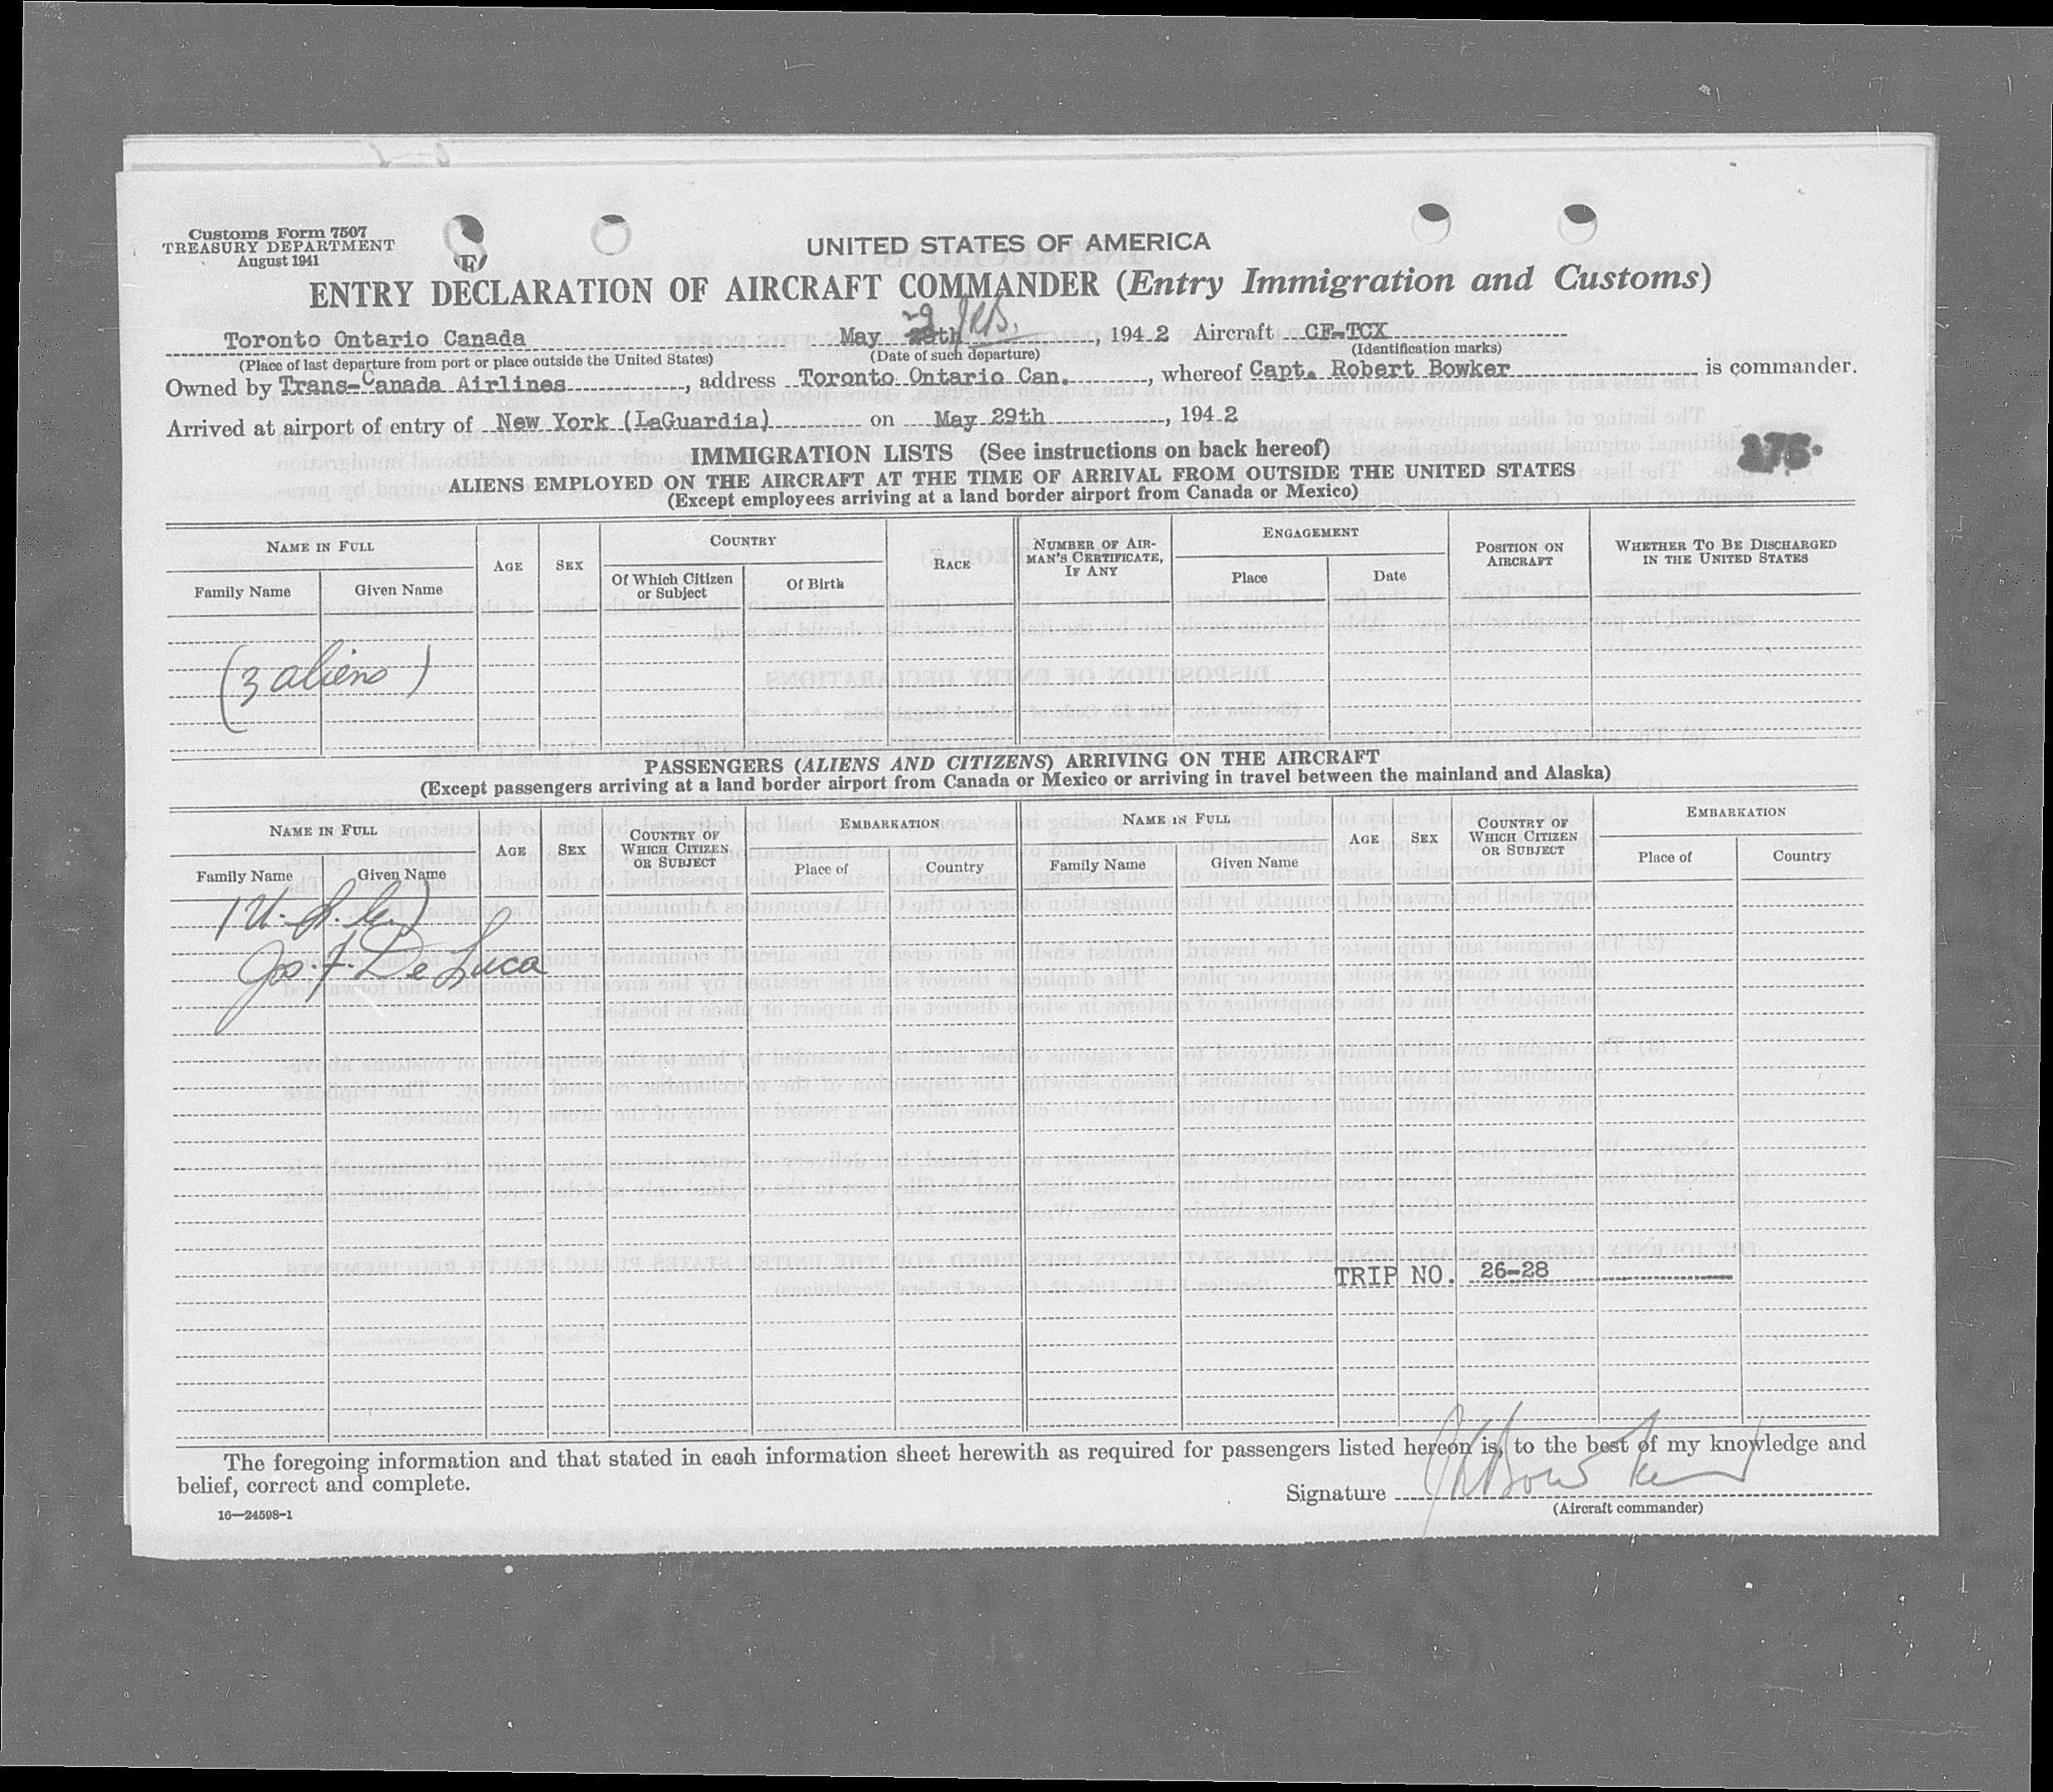 Customs Form 7507
TREASURY DEPARTMENT
August 1941
UNITED STATES OF AMERICA
ENTRY DECLARATION OF AIRCRAFT COMMANDER (Entry Immigration and Customs)
29
Toronto Ontario Canada May 28th, 1942 Aircraft CF-TCX
(Place of last departure from port or place outside the United States) (Date of such departure) (Identification marks)
Owned by Trans-Canada Airlines, address Toronto Ontario Can., whereof Capt. Robert Bowker is commander.
Arrived at airport of entry of New York (LaGuardia) on May 29th, 1942
175
IMMIGRATION LISTS (See instructions on back hereof)
ALIENS EMPLOYED ON THE AIRCRAFT AT THE TIME OF ARRIVAL FROM OUTSIDE THE UNITED STATES
(Except employees arriving at a land border airport from Canada or Mexico)
NAME IN FULL AGE SEX COUNTRY RACE NUMBER OF AIRMAN'S CERTIFICATE, IF ANY ENGAGEMENT POSITION ON AIRCRAFT WHETHER TO BE DISCHARGED IN THE UNITED STATES
Family Name Given Name Of Which Citizen or Subject Of Birth Place Date
(3 aliens)
PASSENGERS (ALIENS AND CITIZENS) ARRIVING ON THE AIRCRAFT
(Except passengers arriving at a land border airport from Canada or Mexico or arriving in travel between the mainland and Alaska)
NAME IN FULL AGE SEX COUNTRY OF WHICH CITIZEN OR SUBJECT EMBARKATION NAME IN FULL AGE SEX COUNTRY OF WHICH CITIZEN OR SUBJECT EMBARKATION
Family Name Given Name Place of Country Family Name Given Name Place of Country
Jos. F. De Luca
TRIP NO. 26-28
The foregoing information and that stated in each information sheet herewith as required for passengers listed hereon is, to the best of my knowledge and
belief, correct and complete.
Signature Bowker
(Aircraft commander)
16—24598-1